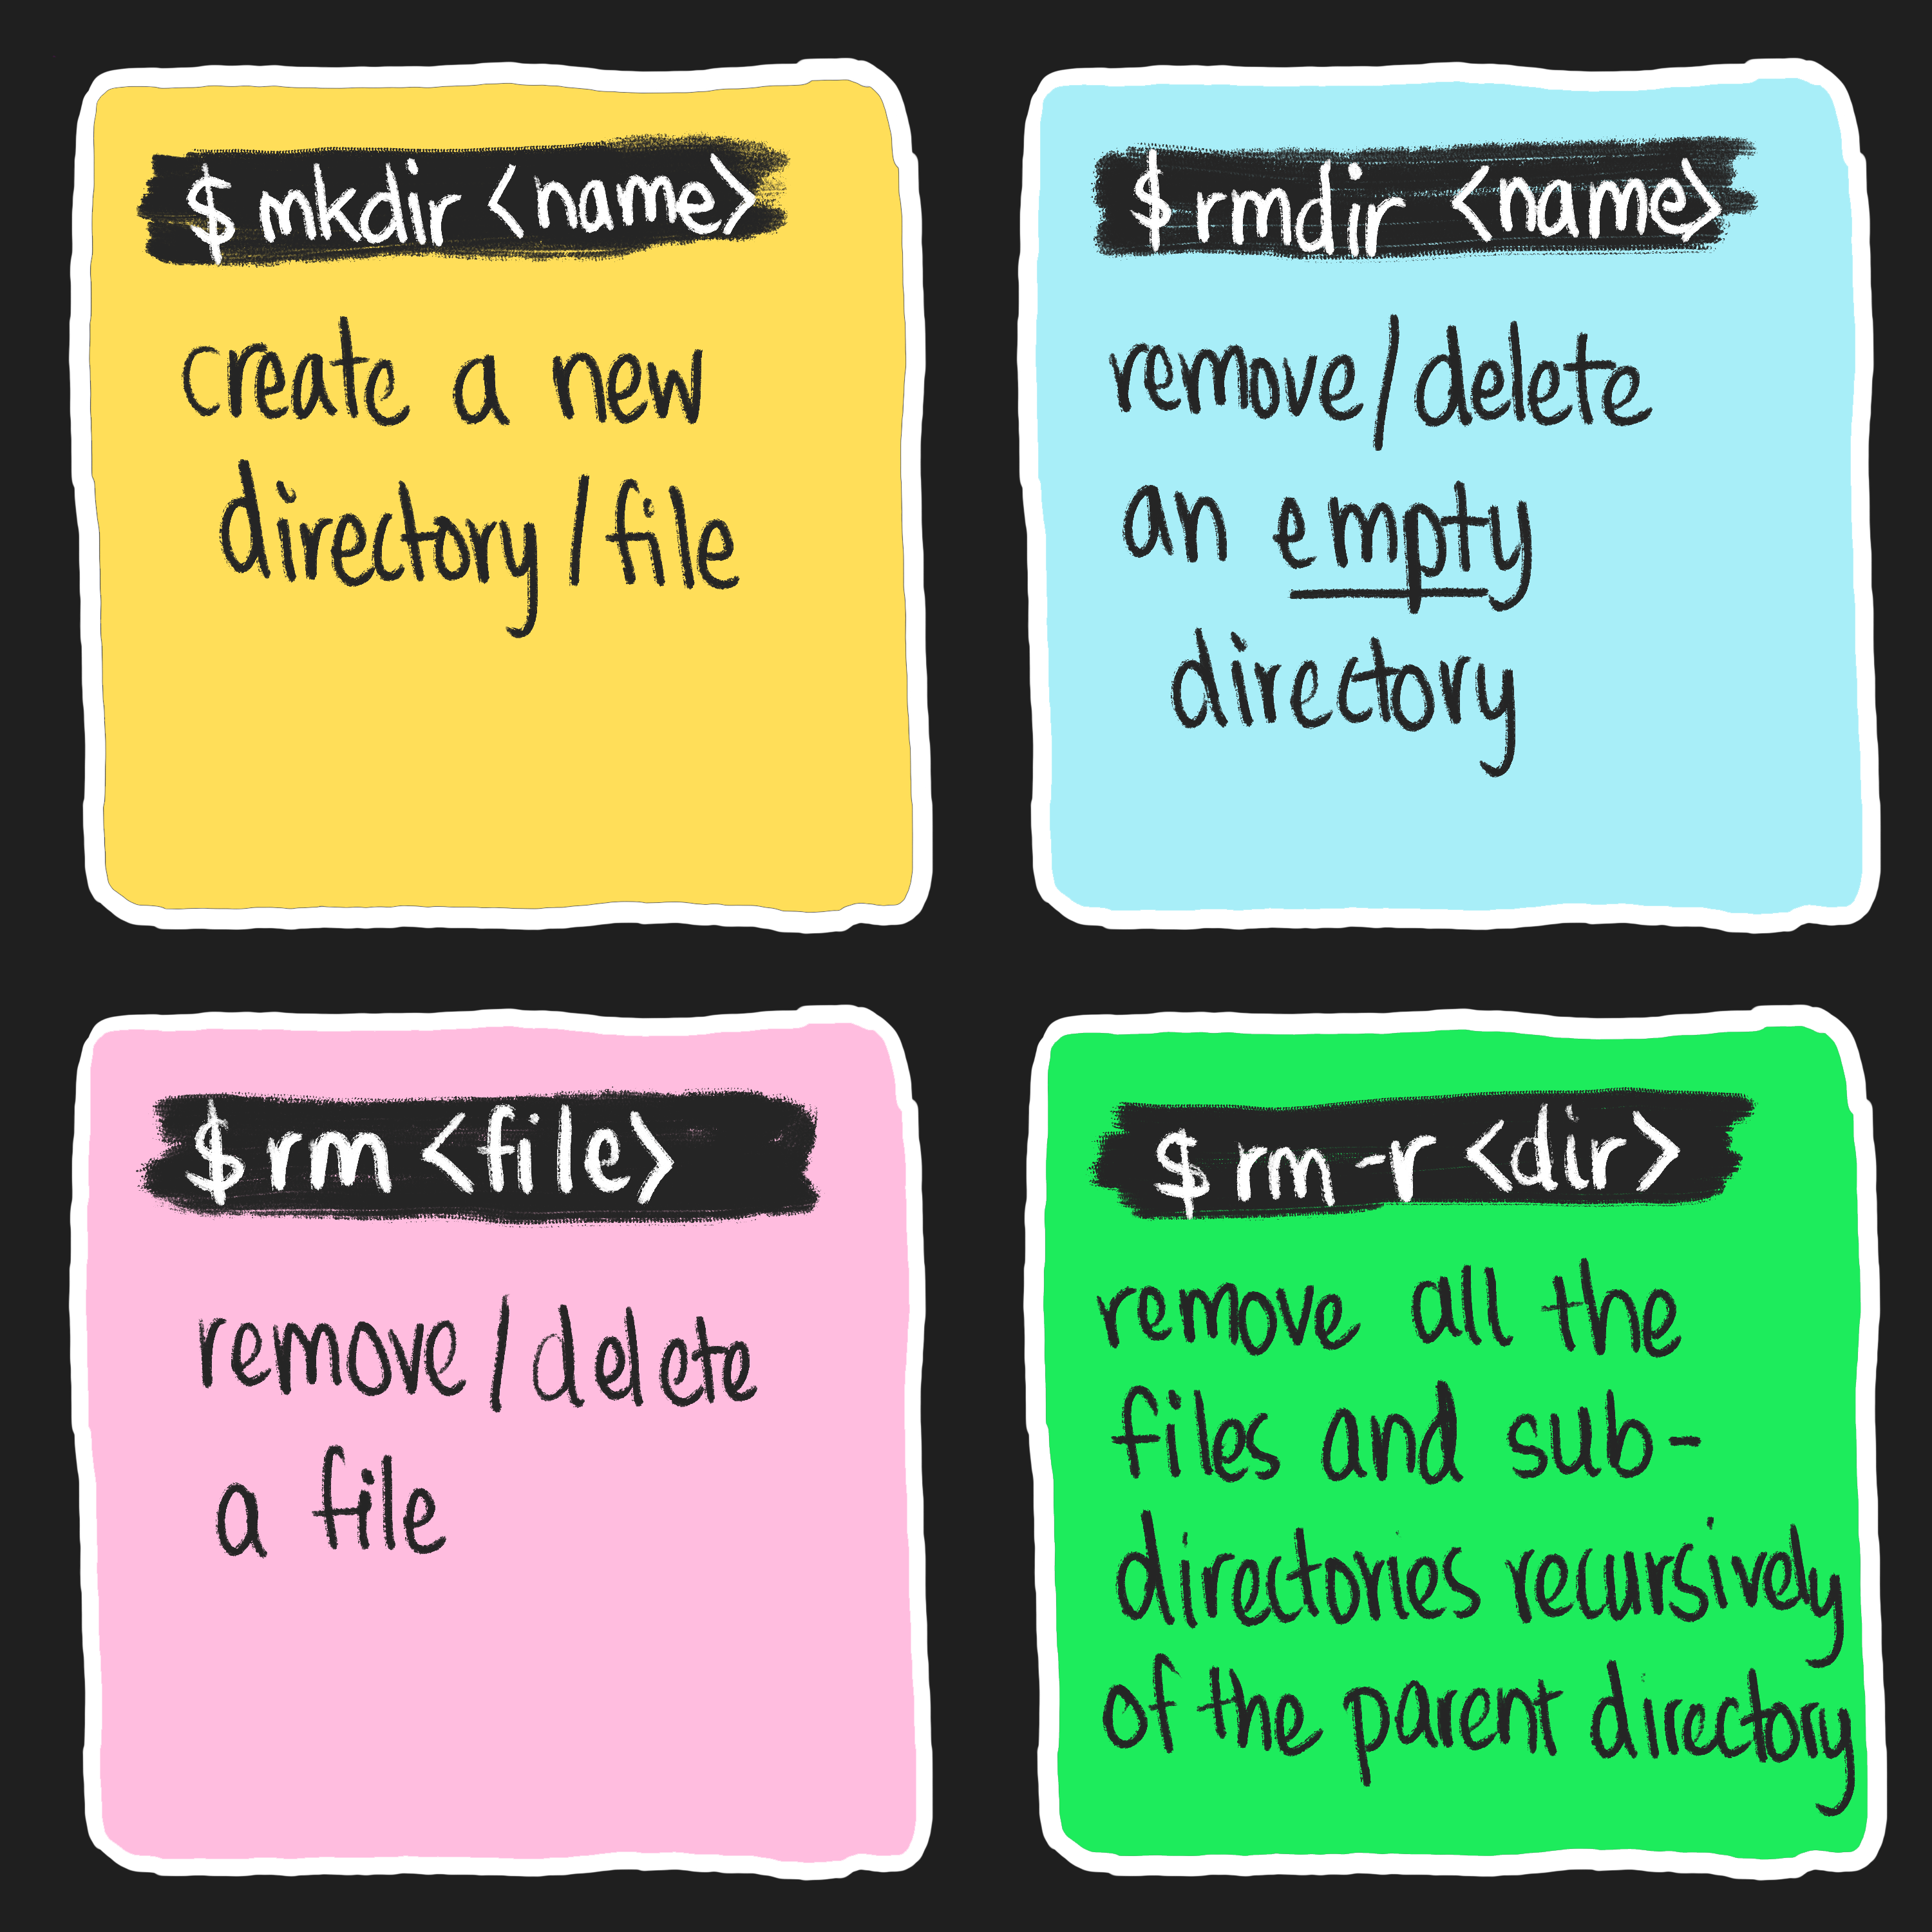 $ mkdir <name>
create a new
directory/file
$ rmdir <name>
remove/delete
an empty
directory
$ rm <file>
remove/delete
a file
$ rm -r <dir>
remove all the
files and sub-
directories recursively
of the parent directory